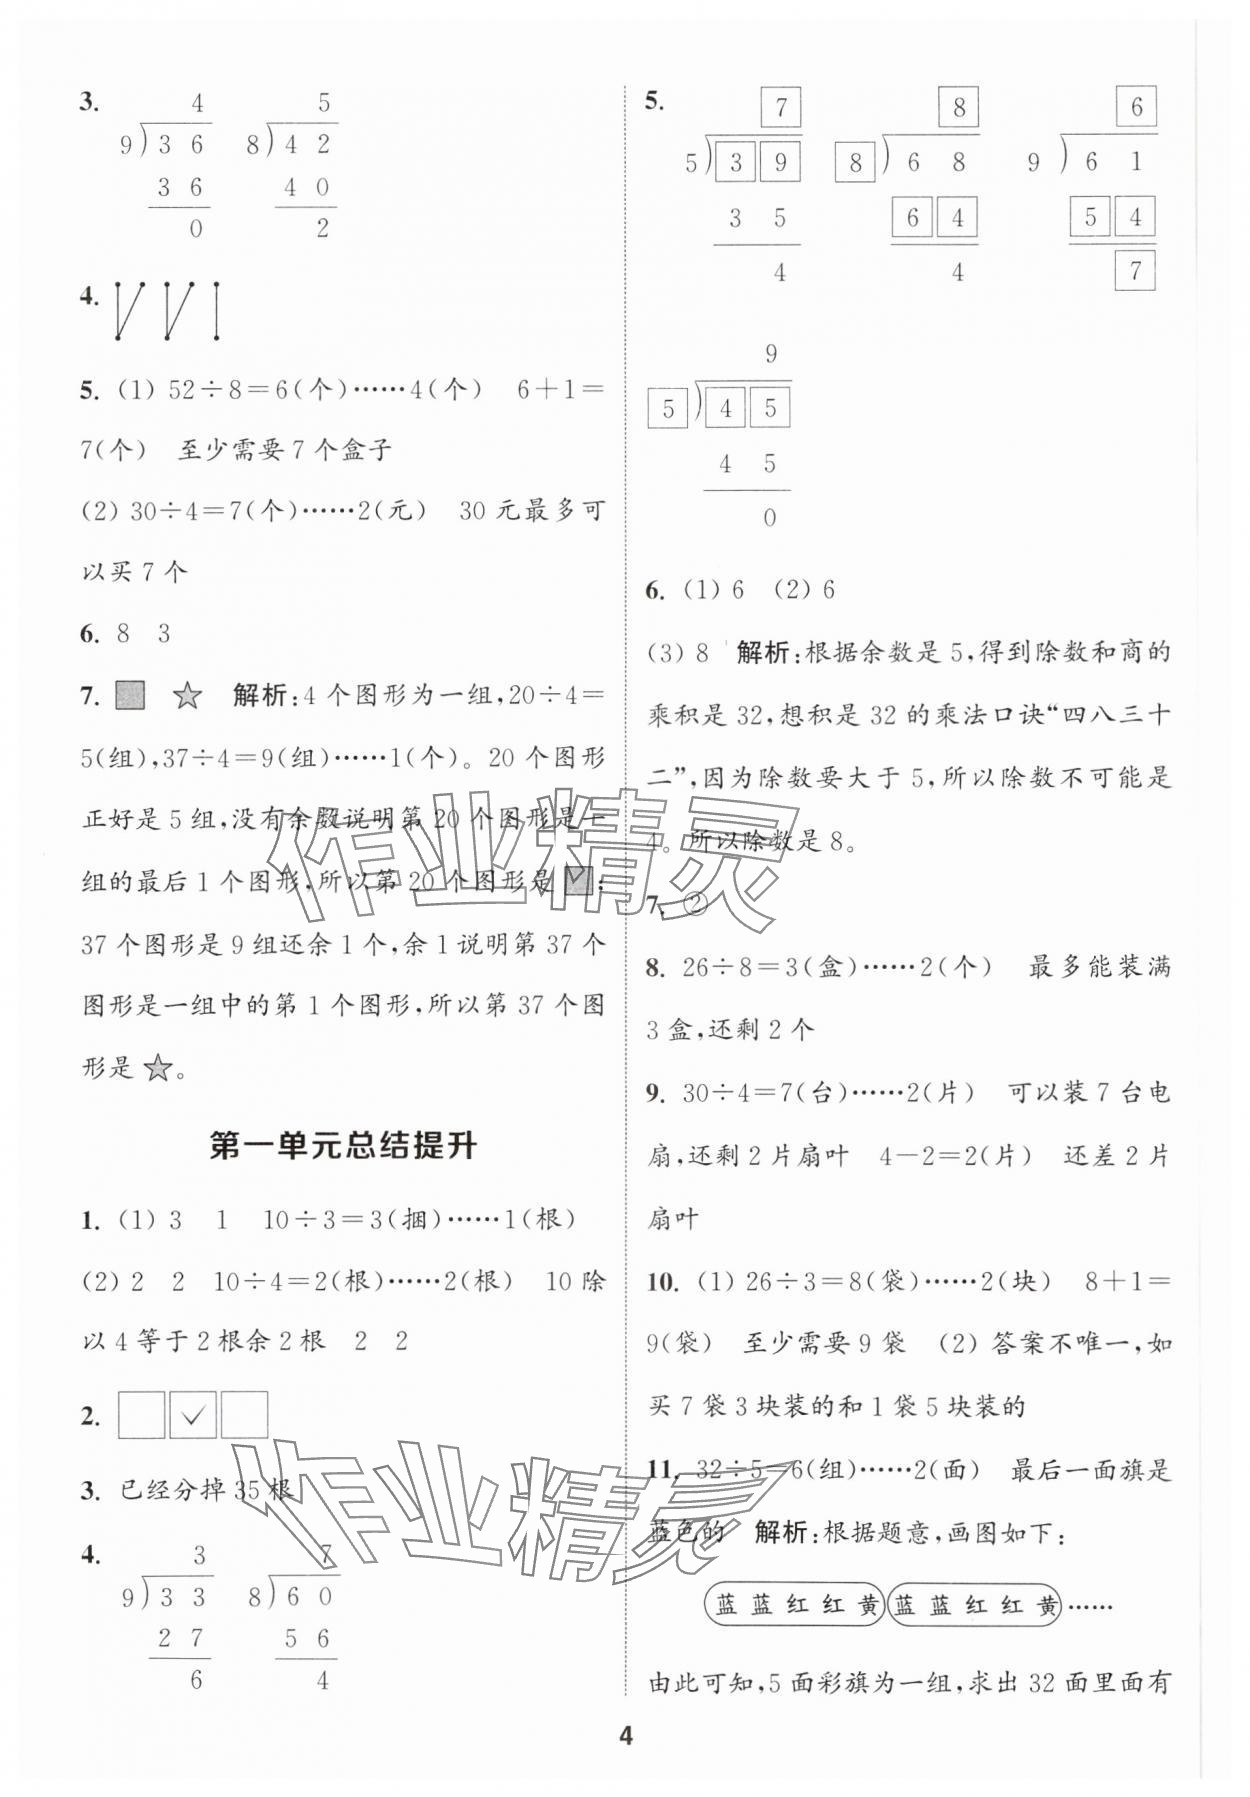 3.
4 5
9)3 6 8)4 2
3 6 4 0
0 2
4.
5. (1) 52÷8=6(个)……4(个) 6+1=
7(个) 至少需要 7 个盒子
(2) 30÷4=7(个)……2(元) 30 元最多可
以买 7 个
6. 8 3
7. ■ ☆ 解析:4 个图形为一组,20÷4=
5(组),37÷4=9(组)……1(个)。20 个图形
正好是 5 组,没有余数说明第 20 个图形是一
组的最后 1 个图形,所以第 20 个图形是■;
37 个图形是 9 组还余 1 个,余 1 说明第 37 个
图形是一组中的第 1 个图形,所以第 37 个图
形是☆。
第一单元总结提升
1. (1) 3 1 10÷3=3(捆)……1(根)
(2) 2 2 10÷4=2(根)……2(根) 10 除
以 4 等于 2 根余 2 根 2 2
2. □ ✓ □
3. 已经分掉 35 根
4.
3 7
9)3 3 8)6 0
2 7 5 6
6 4
5.
7 8 6
5)3 9 8)6 8 9)6 1
3 5 6 4 5 4
4 4 7
9
5)4 5
4 5
0
6. (1) 6 (2) 6
(3) 8 解析:根据余数是 5,得到除数和商的
乘积是 32,想积是 32 的乘法口诀“四八三十
二”,因为除数要大于 5,所以除数不可能是
4。所以除数是 8。
7. ②
8. 26÷8=3(盒)……2(个) 最多能装满
3 盒,还剩 2 个
9. 30÷4=7(台)……2(片) 可以装 7 台电
扇,还剩 2 片扇叶 4-2=2(片) 还差 2 片
扇叶
10. (1) 26÷3=8(袋)……2(块) 8+1=
9(袋) 至少需要 9 袋 (2) 答案不唯一,如
买 7 袋 3 块装的和 1 袋 5 块装的
11. 32÷5=6(组)……2(面) 最后一面旗是
蓝色的 解析:根据题意,画图如下:
蓝 蓝 红 红 黄 蓝 蓝 红 红 黄 ……
由此可知,5 面彩旗为一组,求出 32 面里面有
4
作业精灵
作业精灵